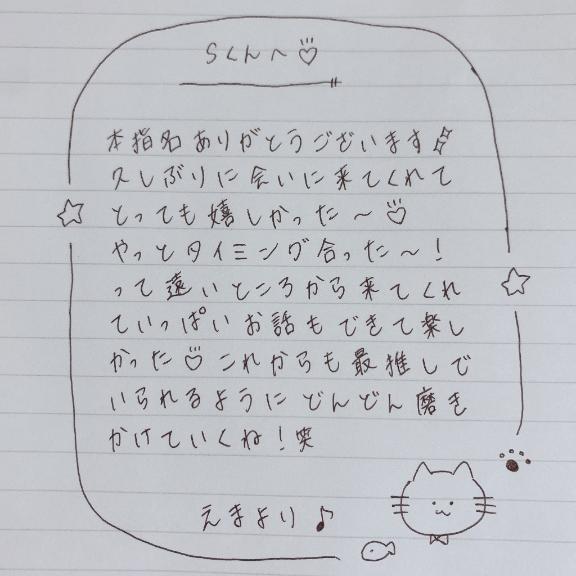 Sくんへ♡
本指名ありがとうございます
久しぶりに会いに来てくれて
とっても嬉しかった〜♡
やっとタイミング合った〜！
って遠いところから来てくれ
ていっぱいお話もできて楽し
かった♡これからも最推しで
いられるようにどんどん磨き
かけていくね！笑
えまより♪